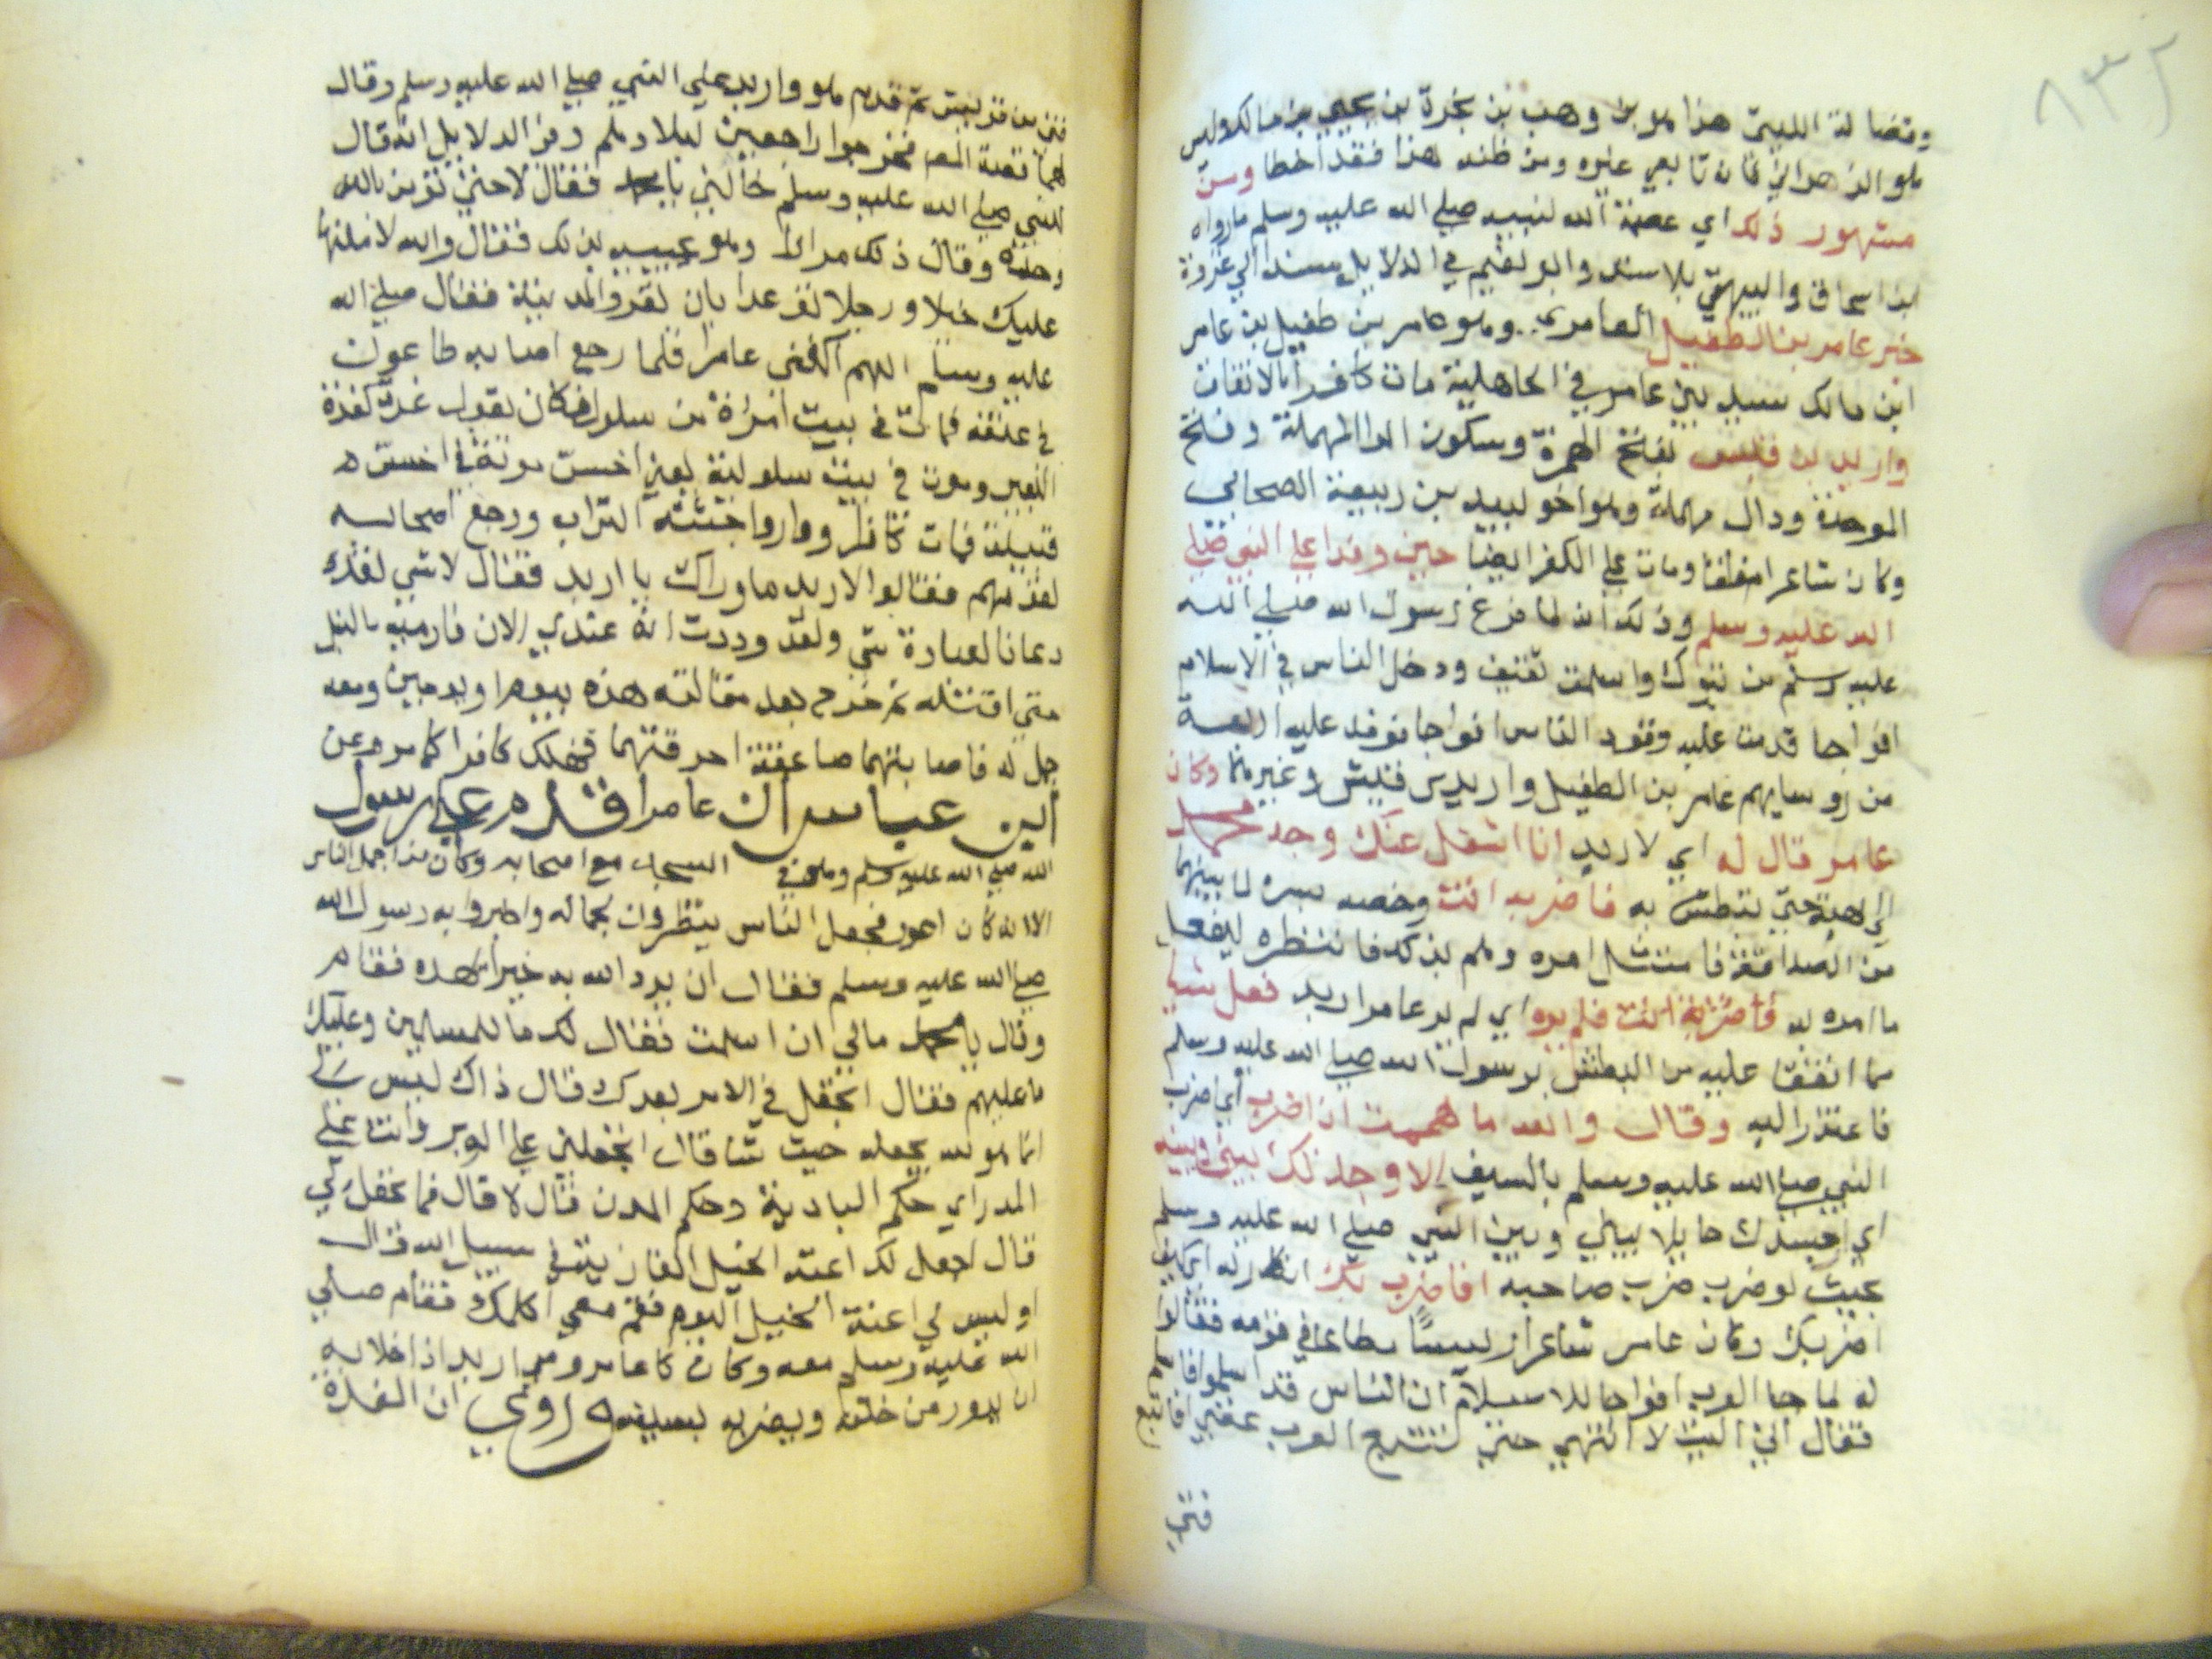 ٨٣٢
وفضالة الليثي هذا هو بن وهب بن بحرة بن يحيى بن مالك وليس
هو الزهراني فانه تابعي غيره ومن ظنه هذا فقد اخطا ومن
مشهور ذلك اي عصمة الله لنبيه صلى الله عليه وسلم ما رواه
ابن اسحاق والبيهقي بلا سند وابو نعيم في الدلايل مسندا الي عروة
خبر عامر بن الطفيل العامري وهو عامر بن طفيل بن عامر
ابن مالك سيد بني عامر في الجاهلية مات كافرا بالاتفاق
واربد بن قيس بفتح الهمزة وسكون الراء المهملة وفتح
الموحدة ودال مهملة وهو اخو لبيد بن ربيعة الصحابي
وكان شاعرا مفلقا ومات علي الكفر ايضا حين وفدا علي النبي صلي
الله عليه وسلم وذلك انه لما فرغ رسول الله صلي الله
عليه وسلم من تبوك واسلمت ثقيف ودخل الناس في الاسلام
افواجا قدمت عليه وفود الناس افواجا فوفد عليه اربعة
من روسايهم عامر بن الطفيل واربد بن قيس وغيرهما وكان
عامر قال له اي لاربد انا اشغل عنك وجه محمد
اي حتي تبطش به فاضربه انت وخصه بسره لما بينهما
من الصداقة فامتثل امره وهم بذلك فانتظره ليفعل
ما امره به فاضربه انت فلم يره اي لم ير عامر اربد فعل شيا
مما اتفقا عليه من البطش برسول الله صلي الله عليه وسلم
فاعتذر اليه وقال والله ما هممت ان اضربه اي اضرب
النبي صلي الله عليه وسلم بالسيف الا وجدتك بيني وبينه
اي حايلا بيني وبين النبي صلي الله عليه وسلم
بحيث لو ضرب ضرب صاحبه افاضربك
اضربك وكان عامر شاعرا رييسا مطاعا في قومه فقالوا
له لما جا العرب افواجا للاسلام ان الناس قد اسلموا فاسلم
فقال اني اليت لا انتهي حتي تتبع العرب عقبي افاتبع عقب
فتي
فتي من قريش ثم قدم هو واربد علي النبي صلي الله عليه وسلم وقال
لهما فخرجوا راجعين لبلادهم وفي الدلايل انه قال
للنبي صلي الله عليه وسلم خالني يا محمد فقال لا حتي تومن بالله
وحده وقال ذلك مرارا وهو يجيبه بذلك فقال والله لاملانها
عليك خيلا ورجلا بان تغزو المدينة فقال صلي الله
عليه وسلم اللهم اكفني عامرا فلما رجع اصابه طاعون
في عنقه فمات في بيت امراة من سلول فكان يقول غدة كغدة
البعير وموت في بيت سلولية يعني اخس موتة في اخس
قبيلة فمات كافرا وواروا جثته التراب ورجع اصحابه
لقومهم فقالوا لاربد ما وراك يا اربد فقال لا شي لقد
دعانا لعبادة شي ولقد وددت انه عندي الان فارميه بالنبل
حتي اقتله ثم خرج بعد مقالته هذه بيوم او يومين ومعه
جمل له فاصابتهما صاعقة احرقتهما فهلك كافرا كما مر عن
ابن عباس ان عامرا قدم علي رسول
الله صلي الله عليه وسلم وهو في المسجد مع اصحابه وكان من اجمل الناس
الا انه كان اعور فجعل الناس ينظرون لجماله واخبروا به رسول الله
صلي الله عليه وسلم فقال ان يرد الله به خيرا يهده فقام
وقال يا محمد مالي ان اسلمت فقال لك ما للمسلمين وعليك
ما عليهم فقال اتجعل لي الامر بعدك قال ذاك ليس لي
انما هو لله يجعله حيث شا قال اتجعلني علي الوبر وانت علي
المدر اي حكم البادية وحكم المدن قال لا قال فما تجعل لي
قال اجعل لك اعنة الخيل الغازية في سبيل الله قال
اوليس لي اعنة الخيل اليوم فقم معي اكلمك فقام صلي
الله عليه وسلم معه وكان عامر امر اربد اذا خلا به
ان يدور من خلفه ويضربه بسيفه وروي ان الغدة